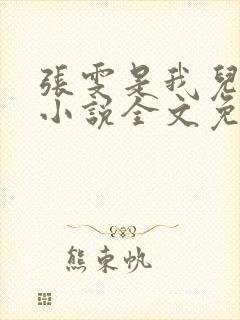 張雯是我兒
小說全文免
熊東帆